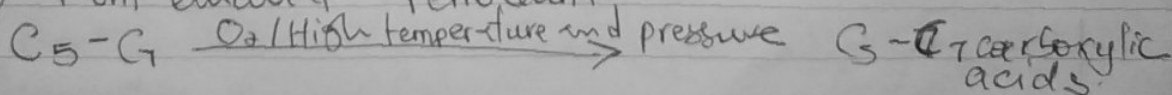 C5-C7 O2/High temperature and pressure C5-C7 carboxylic
acids.